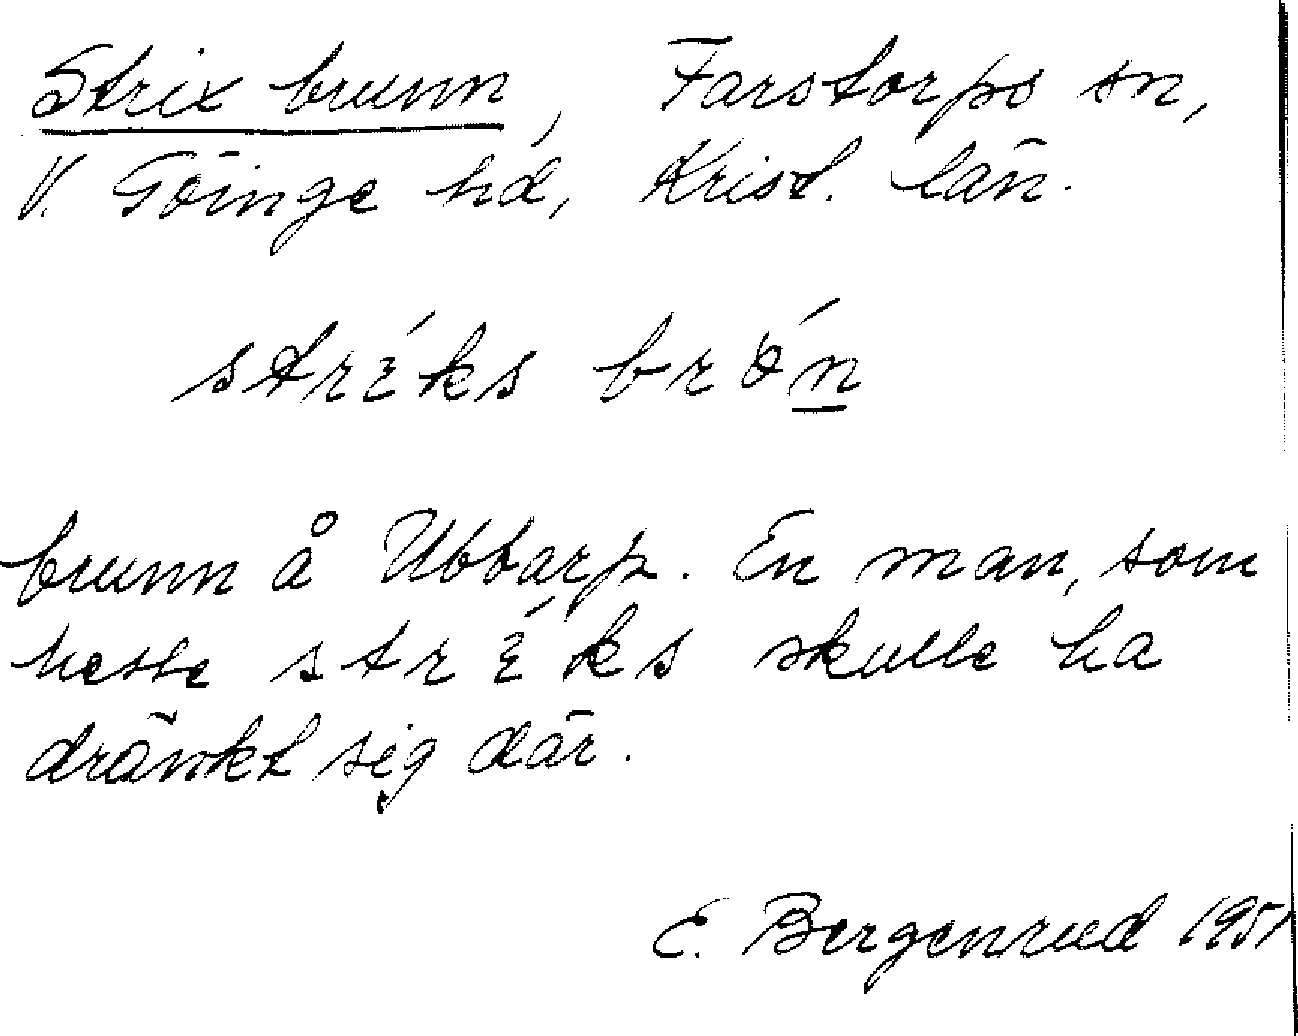 Strix brunn, Farstorps sn,
V. Göinge hd, Krist. län.
strɛ́ks brǿn̲
brunn å Ubbarp. En man, som
hette strɛ́ks skulle ha
dränkt sig där.
E. Bergenrud 1951